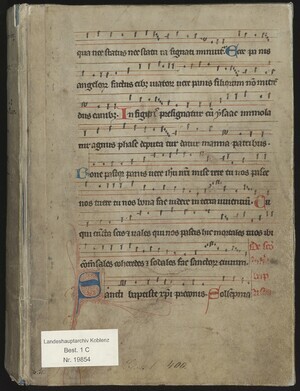 qua nec status nec statura signati minuitur Ecce panis
angelorum factus cibus viatorum vere panis filiorum non mittendus
dus canibus. In figuris presignatur cum ysaac immola
tur agnus phase deputatur datur manna patribus
Bone pastor panis vere ihu nostri miserere tu nos pasce
nos tuere tu nos bona fac videre in terra viventium Tu
qui cuncta scis et vales qui nos pascis hic mortales tuos ibi
comensales coheredes et sodales fac sanctorum civium.
Sancti baptiste xpi preconis Sollempnia
404
Landeshauptarchiv Koblenz
Best. 1 C
Nr. 19854